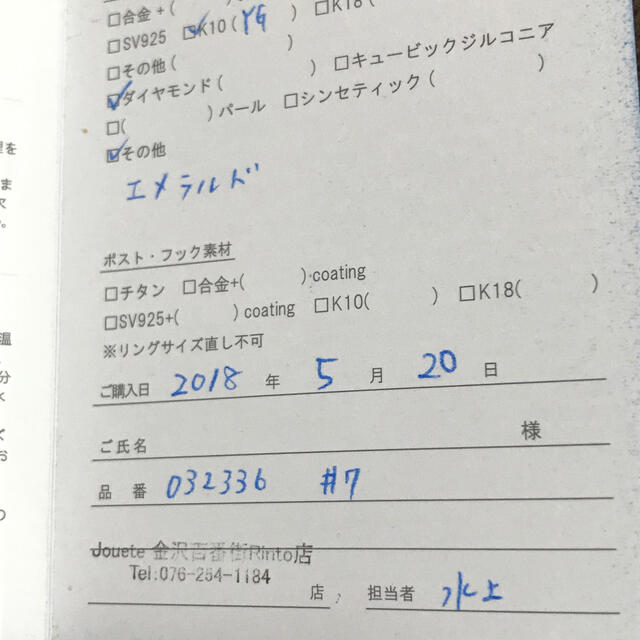 □合金+(
□SV925 ☑K10(YG ) □K18(
□その他( )
☑ダイヤモンド( ) □キュービックジルコニア
□( )パール □シンセティック( )
☑その他
エメラルド
ポスト・フック素材
□チタン □合金+( )coating
□SV925+( )coating □K10( ) □K18( )
※リングサイズ直し不可
ご購入日 2018 年 5 月 20 日
ご氏名 様
品番 032336 #7
Jouete 金沢百番街Rinto店
Tel:076-254-1184
店 担当者 水上